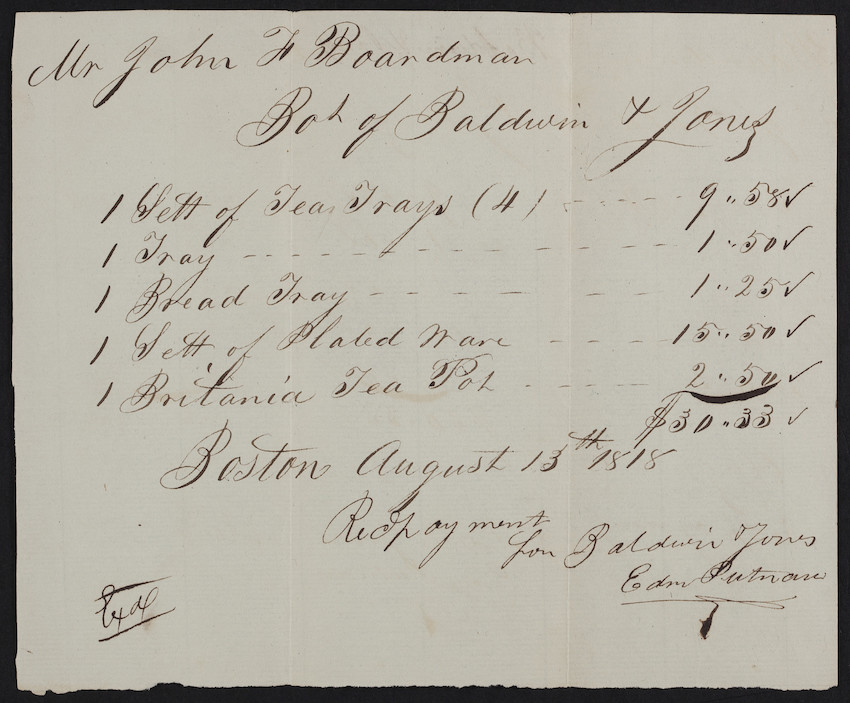 Mr John F Boardman
Bot of Baldwin & Jones
1 Sett of Tea Trays (4) 9..58✓
1 Tray 1..50✓
1 Bread Tray 1..25✓
1 Sett of Plated Ware 15..50✓
1 Britania Tea Pot 2..50✓
$30..33✓
Boston August 13th 1818
Recd payment
for Baldwin & Jones
Edm Putnam